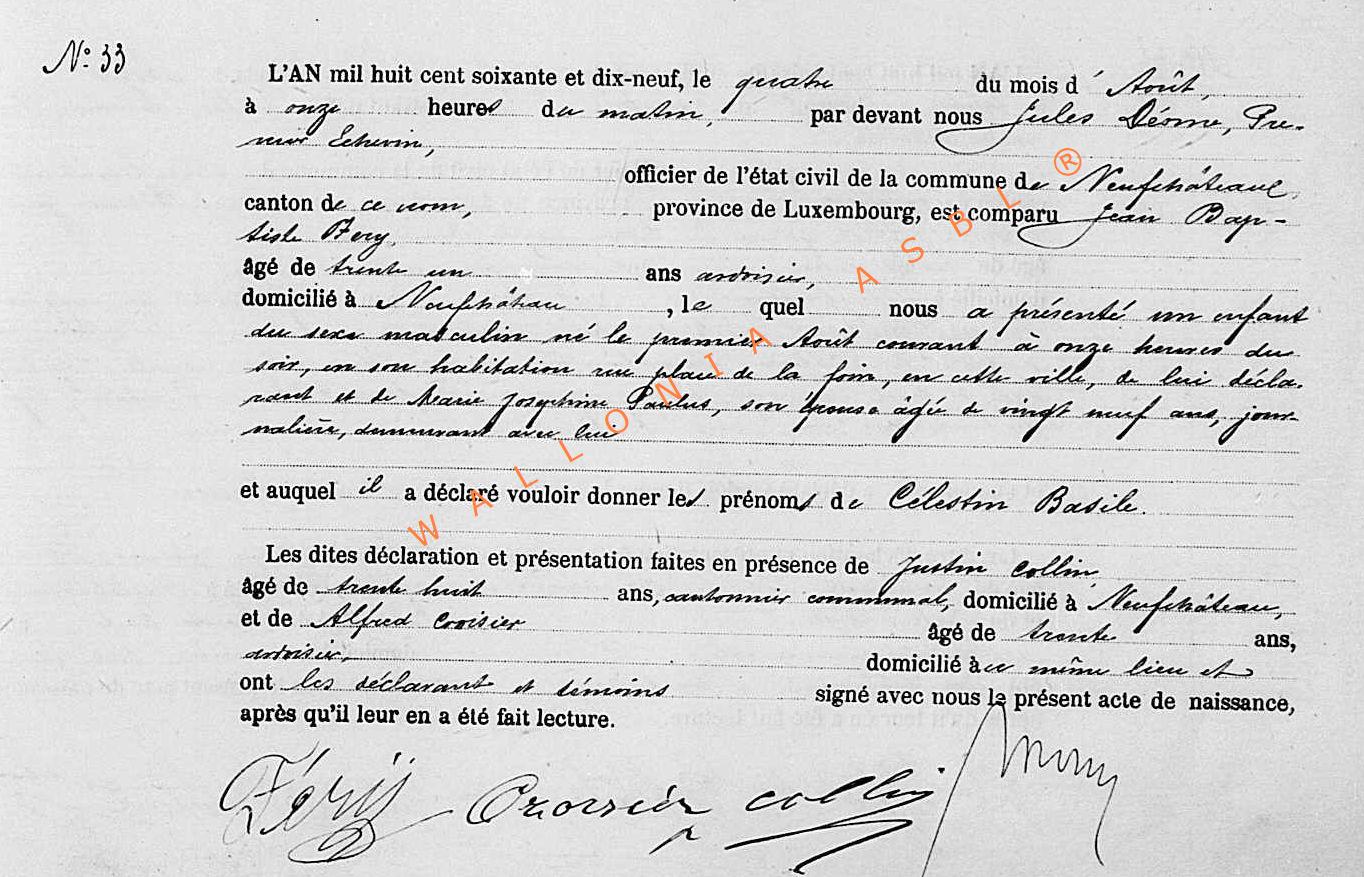 N° 33
L'AN mil huit cent soixante et dix-neuf, le quatre du mois d' Août,
à onze heures du matin, par devant nous Jules Déome, Pre-
mier Echevin,
officier de l'état civil de la commune de Neufchâteau,
canton de ce nom, province de Luxembourg, est comparu Jean Bap-
tiste Fery
âgé de trente un ans ardoisier,
domicilié à Neufchâteau, lequel nous a présenté un enfant
du sexe masculin né le premier Août courant à onze heures du
soir, en son habitation rue place de la foire, en cette ville, de lui décla-
rant et de Marie Josephine Paulus, son épouse âgée de vingt neuf ans, jour-
nalière, demeurant avec lui
et auquel il a déclaré vouloir donner les prénoms de Célestin Basile.
Les dites déclaration et présentation faites en présence de Justin Collin
âgé de trente huit ans, cantonnier communal, domicilié à Neufchâteau,
et de Alfred Croisier âgé de trente ans,
ardoisier, domicilié à ce même lieu et
ont les déclarant et témoins signé avec nous le présent acte de naissance,
après qu'il leur en a été fait lecture.
Féry Croisier Collin
WALLONIA ASBL ®